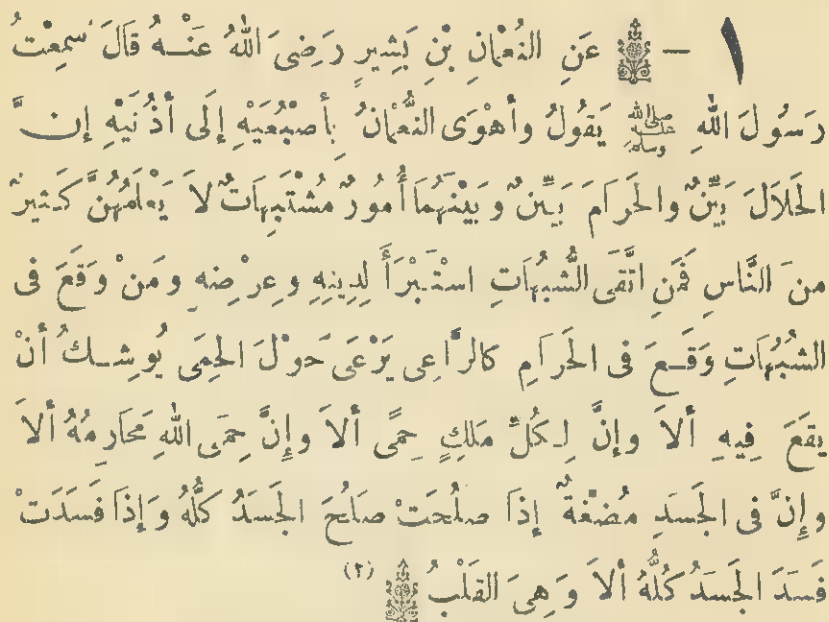 ١ – عَنِ النُّعْمَانِ بْنِ بَشِيرٍ رَضِىَ اللهُ عَنْهُ قَالَ سَمِعْتُ
رَسُولَ اللهِ ﷺ يَقُولُ وَأَهْوَى النُّعْمَانُ بِأُصْبُعَيْهِ إِلَى أُذُنَيْهِ إِنَّ
الحَلَالَ بَيِّنٌ والحَرَامَ بَيِّنٌ وَبَيْنَهُمَا أُمُورٌ مُشْتَبِهَاتٌ لاَ يَعْلَمُهُنَّ كَثِيرٌ
مِنَ النَّاسِ فَمَنِ اتَّقَى الشُّبُهَاتِ اسْتَبْرَأَ لِدِينِهِ وعِرْضِهِ ومَنْ وَقَعَ فى
الشُّبُهَاتِ وَقَعَ فى الحَرَامِ كَالرَّاعِى يَرْعَى حَوْلَ الحِمَى يُوشِكُ أَنْ
يقَعَ فِيهِ أَلاَ وإِنَّ لِكُلِّ مَلِكٍ حِمًى أَلاَ وإِنَّ حِمَى اللهِ مَحَارِمُهُ أَلاَ
وإِنَّ فى الجَسَدِ مُضْغَةً إِذَا صلُحَتْ صَلُحَ الجَسَدُ كلُّهُ وَإِذَا فَسَدَتْ
فَسَدَ الجَسَدُ كُلُّهُ أَلاَ وَهِىَ القَلْبُ (٢)